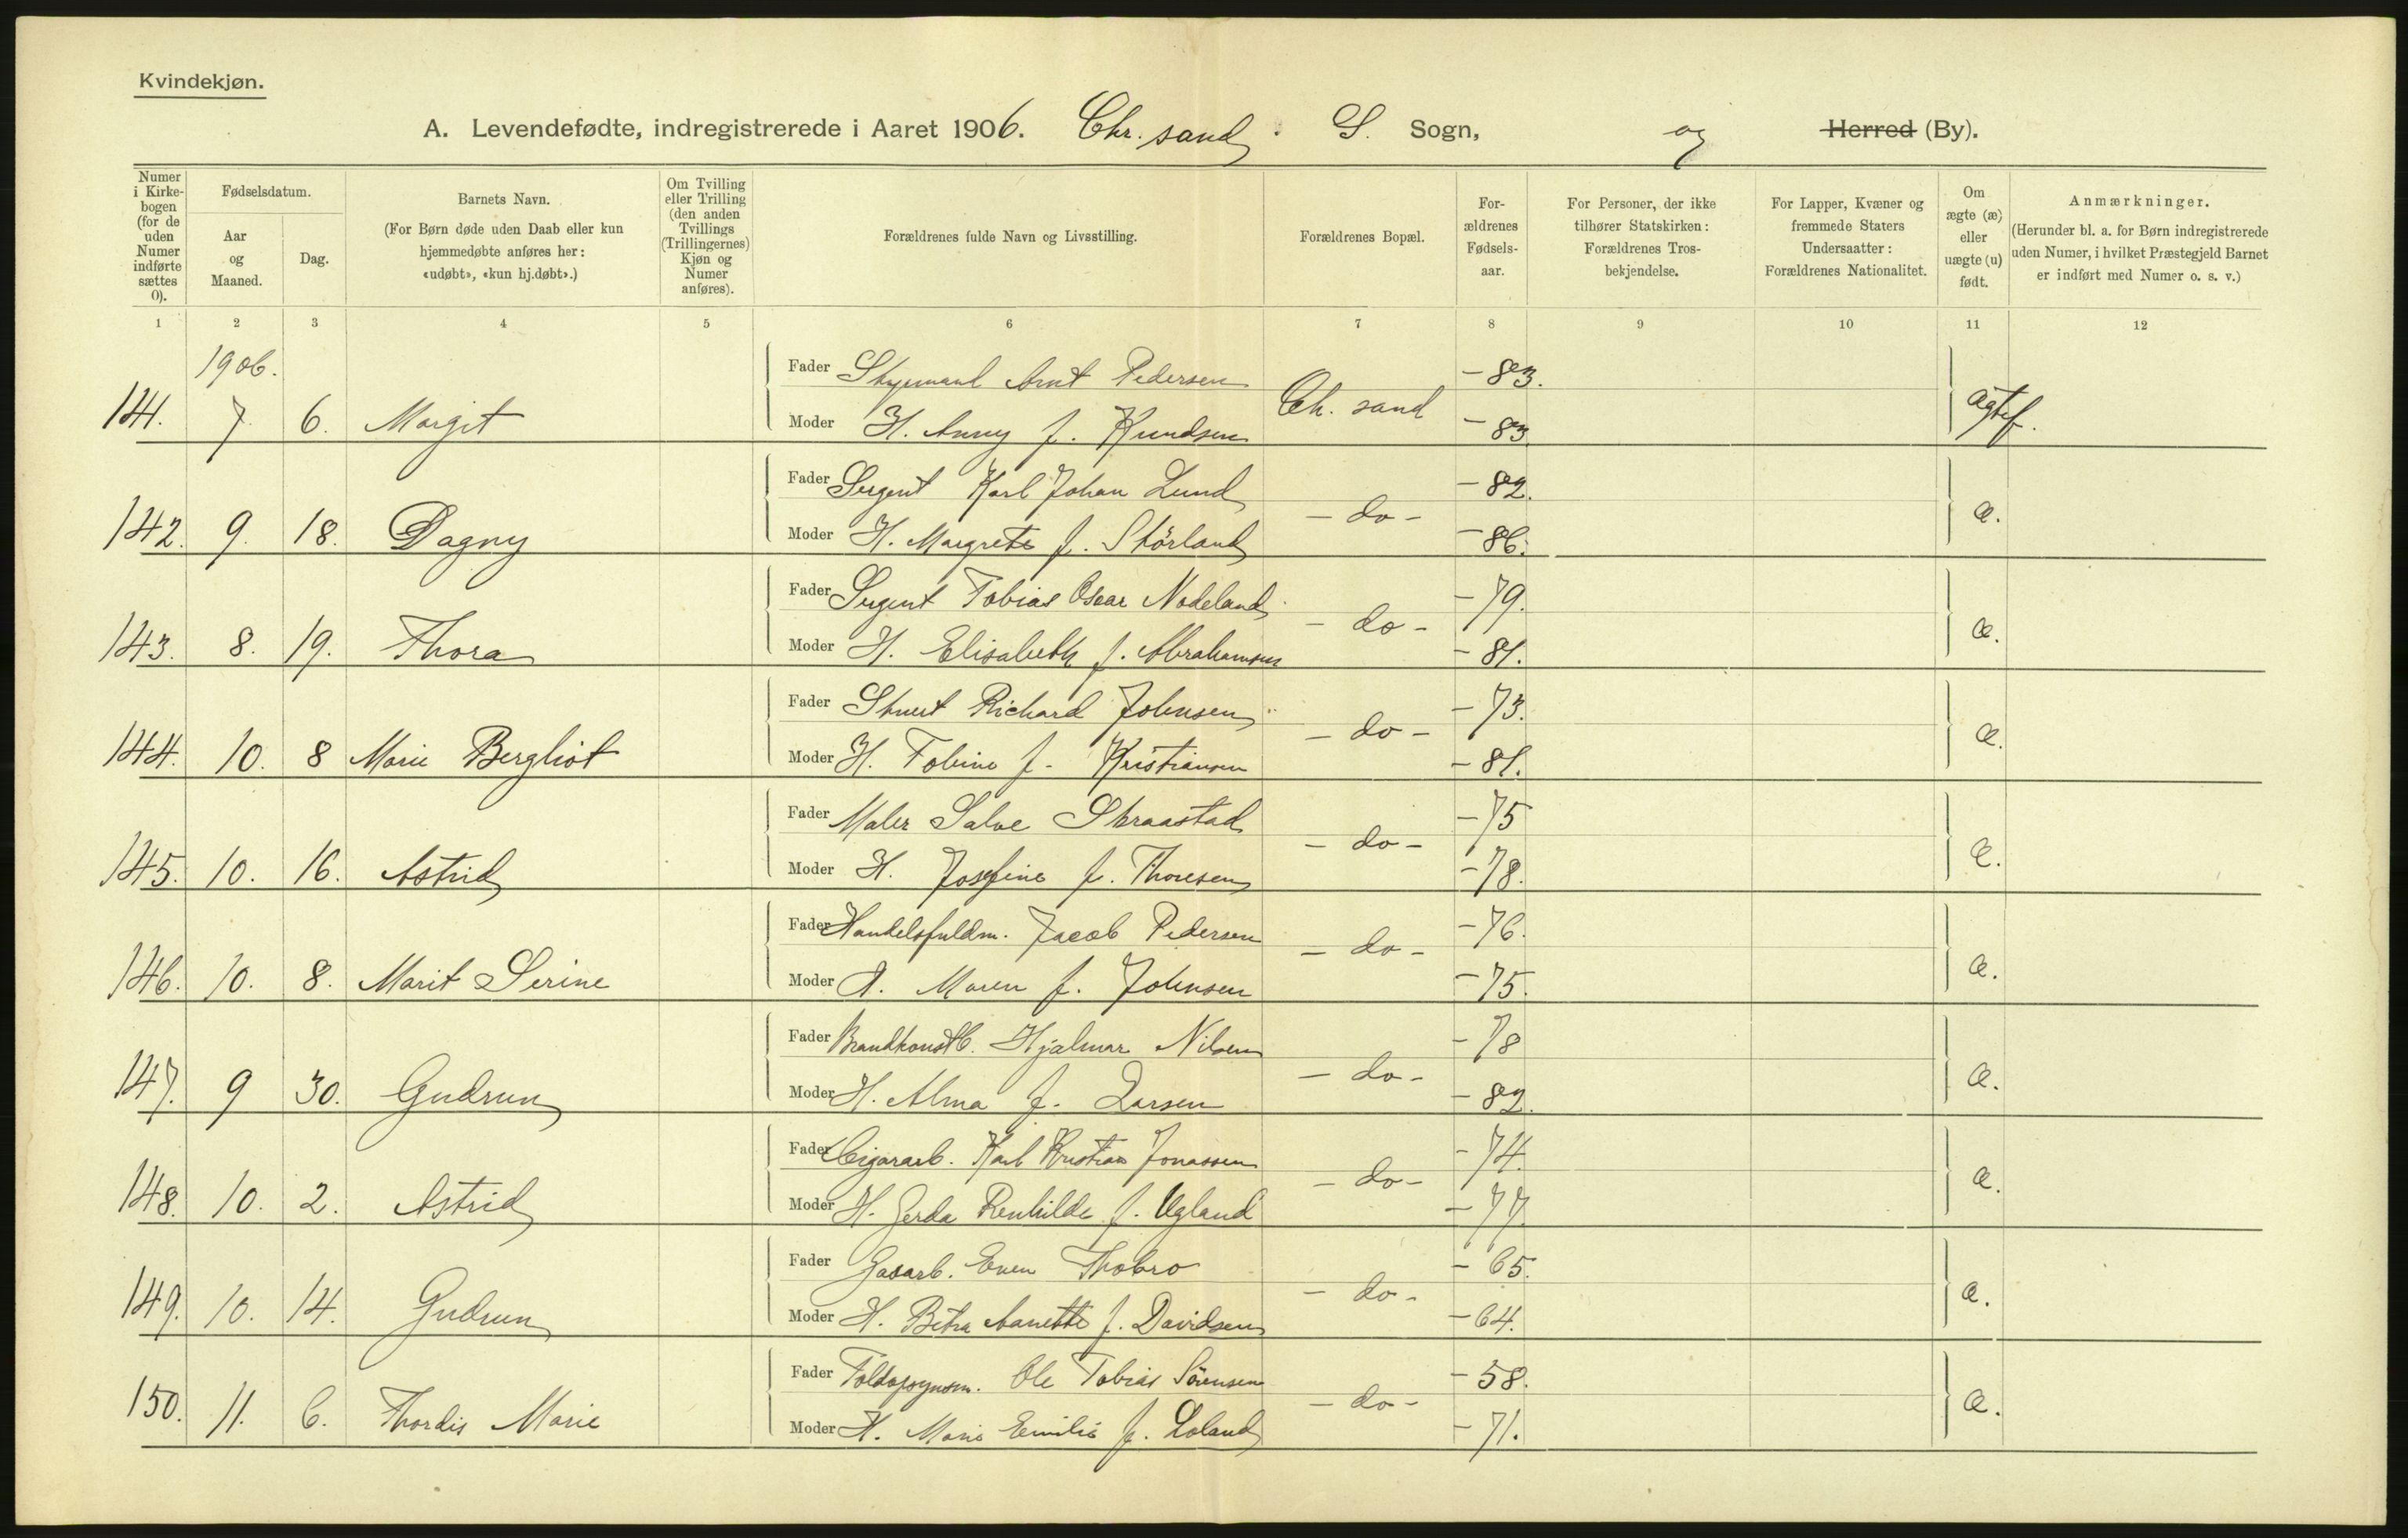 Kvindekjøn.
A. Levendefødte, indregistrerede i Aaret 1906. Chr.sand S. Sogn, og Herred (By).
Numer i Kirkebogen (for de uden Numer indførte sættes 0).
Fødselsdatum.
Aar og Maaned.
Dag.
Barnets Navn.
(For Børn døde uden Daab eller kun hjemmedøbte anføres her: «udøbt», «kun hj.døbt».)
Om Tvilling eller Trilling (den anden Tvillings (Trillingernes) Kjøn og Numer anføres).
Forældrenes fulde Navn og Livsstilling.
Forældrenes Bopæl.
Forældrenes Fødselsaar.
For Personer, der ikke tilhører Statskirken: Forældrenes Trosbekjendelse.
For Lapper, Kvæner og fremmede Staters Undersaatter: Forældrenes Nationalitet.
Om ægte (æ) eller uægte (u) født.
Anmærkninger.
(Herunder bl. a. for Børn indregistrerede uden Numer, i hvilket Præstegjeld Barnet er indført med Numer o. s. v.)
1 2 3 4 5 6 7 8 9 10 11 12
1906.
Fader Arnt Pedersen -83.
141. 7 6. Margit Ch. sand ægtef.
Moder H. Anny f. Knudsen -83
Fader Sergent Karl Johan Lund -82.
142. 9. 18. Dagny -do- æ.
Moder H. Margrete f. Størland -86.
Fader Sergent Tobias Oscar Nodeland -79.
143. 8. 19. Thora -do- æ.
Moder H. Elisabeth f. Abrahamsen -81.
Fader Richard Johnsen -73.
144. 10. 8 Marie Bergliot -do- æ.
Moder H. Tobine f. Kristiansen -81.
Fader Maler Salve Skraastad -75
145. 10. 16. Astrid -do- æ.
Moder H. Josefine f. Thoresen -78.
Fader Handelsfuldm. Jacob Pedersen -76.
146. 10. 8. Marit Serine -do- æ.
Moder H. Maren f. Johnsen -75.
Fader Brandkonstb. Hjalmar Nilsen -78
147. 9 30. Gudrun -do- æ.
Moder H. Alma f. Larsen -82.
Fader Cigararb. Karl Kristian Jonassen -74.
148. 10. 2. Astrid -do- æ.
Moder H. Gerda Renhilde f. Ugland -77.
Fader Gasarb. Even Thobro -65.
149. 10. 14. Gudrun -do- æ.
Moder H. Betra Nanette f. Davidsen -64.
Fader Toldopsynsm. Ole Tobias Sørensen -58.
150. 11. 6. Thordis Marie -do- æ.
Moder H. Marie Emilie f. Loland -71.